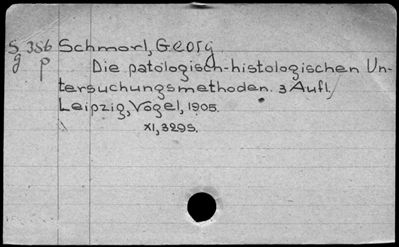 S 386 Schmorl, Georg
g p Die patologisch-histologischen Un-
tersuchungsmethoden. 3 Aufl.
Leipzig, Vogel, 1905.
XI, 329 S.